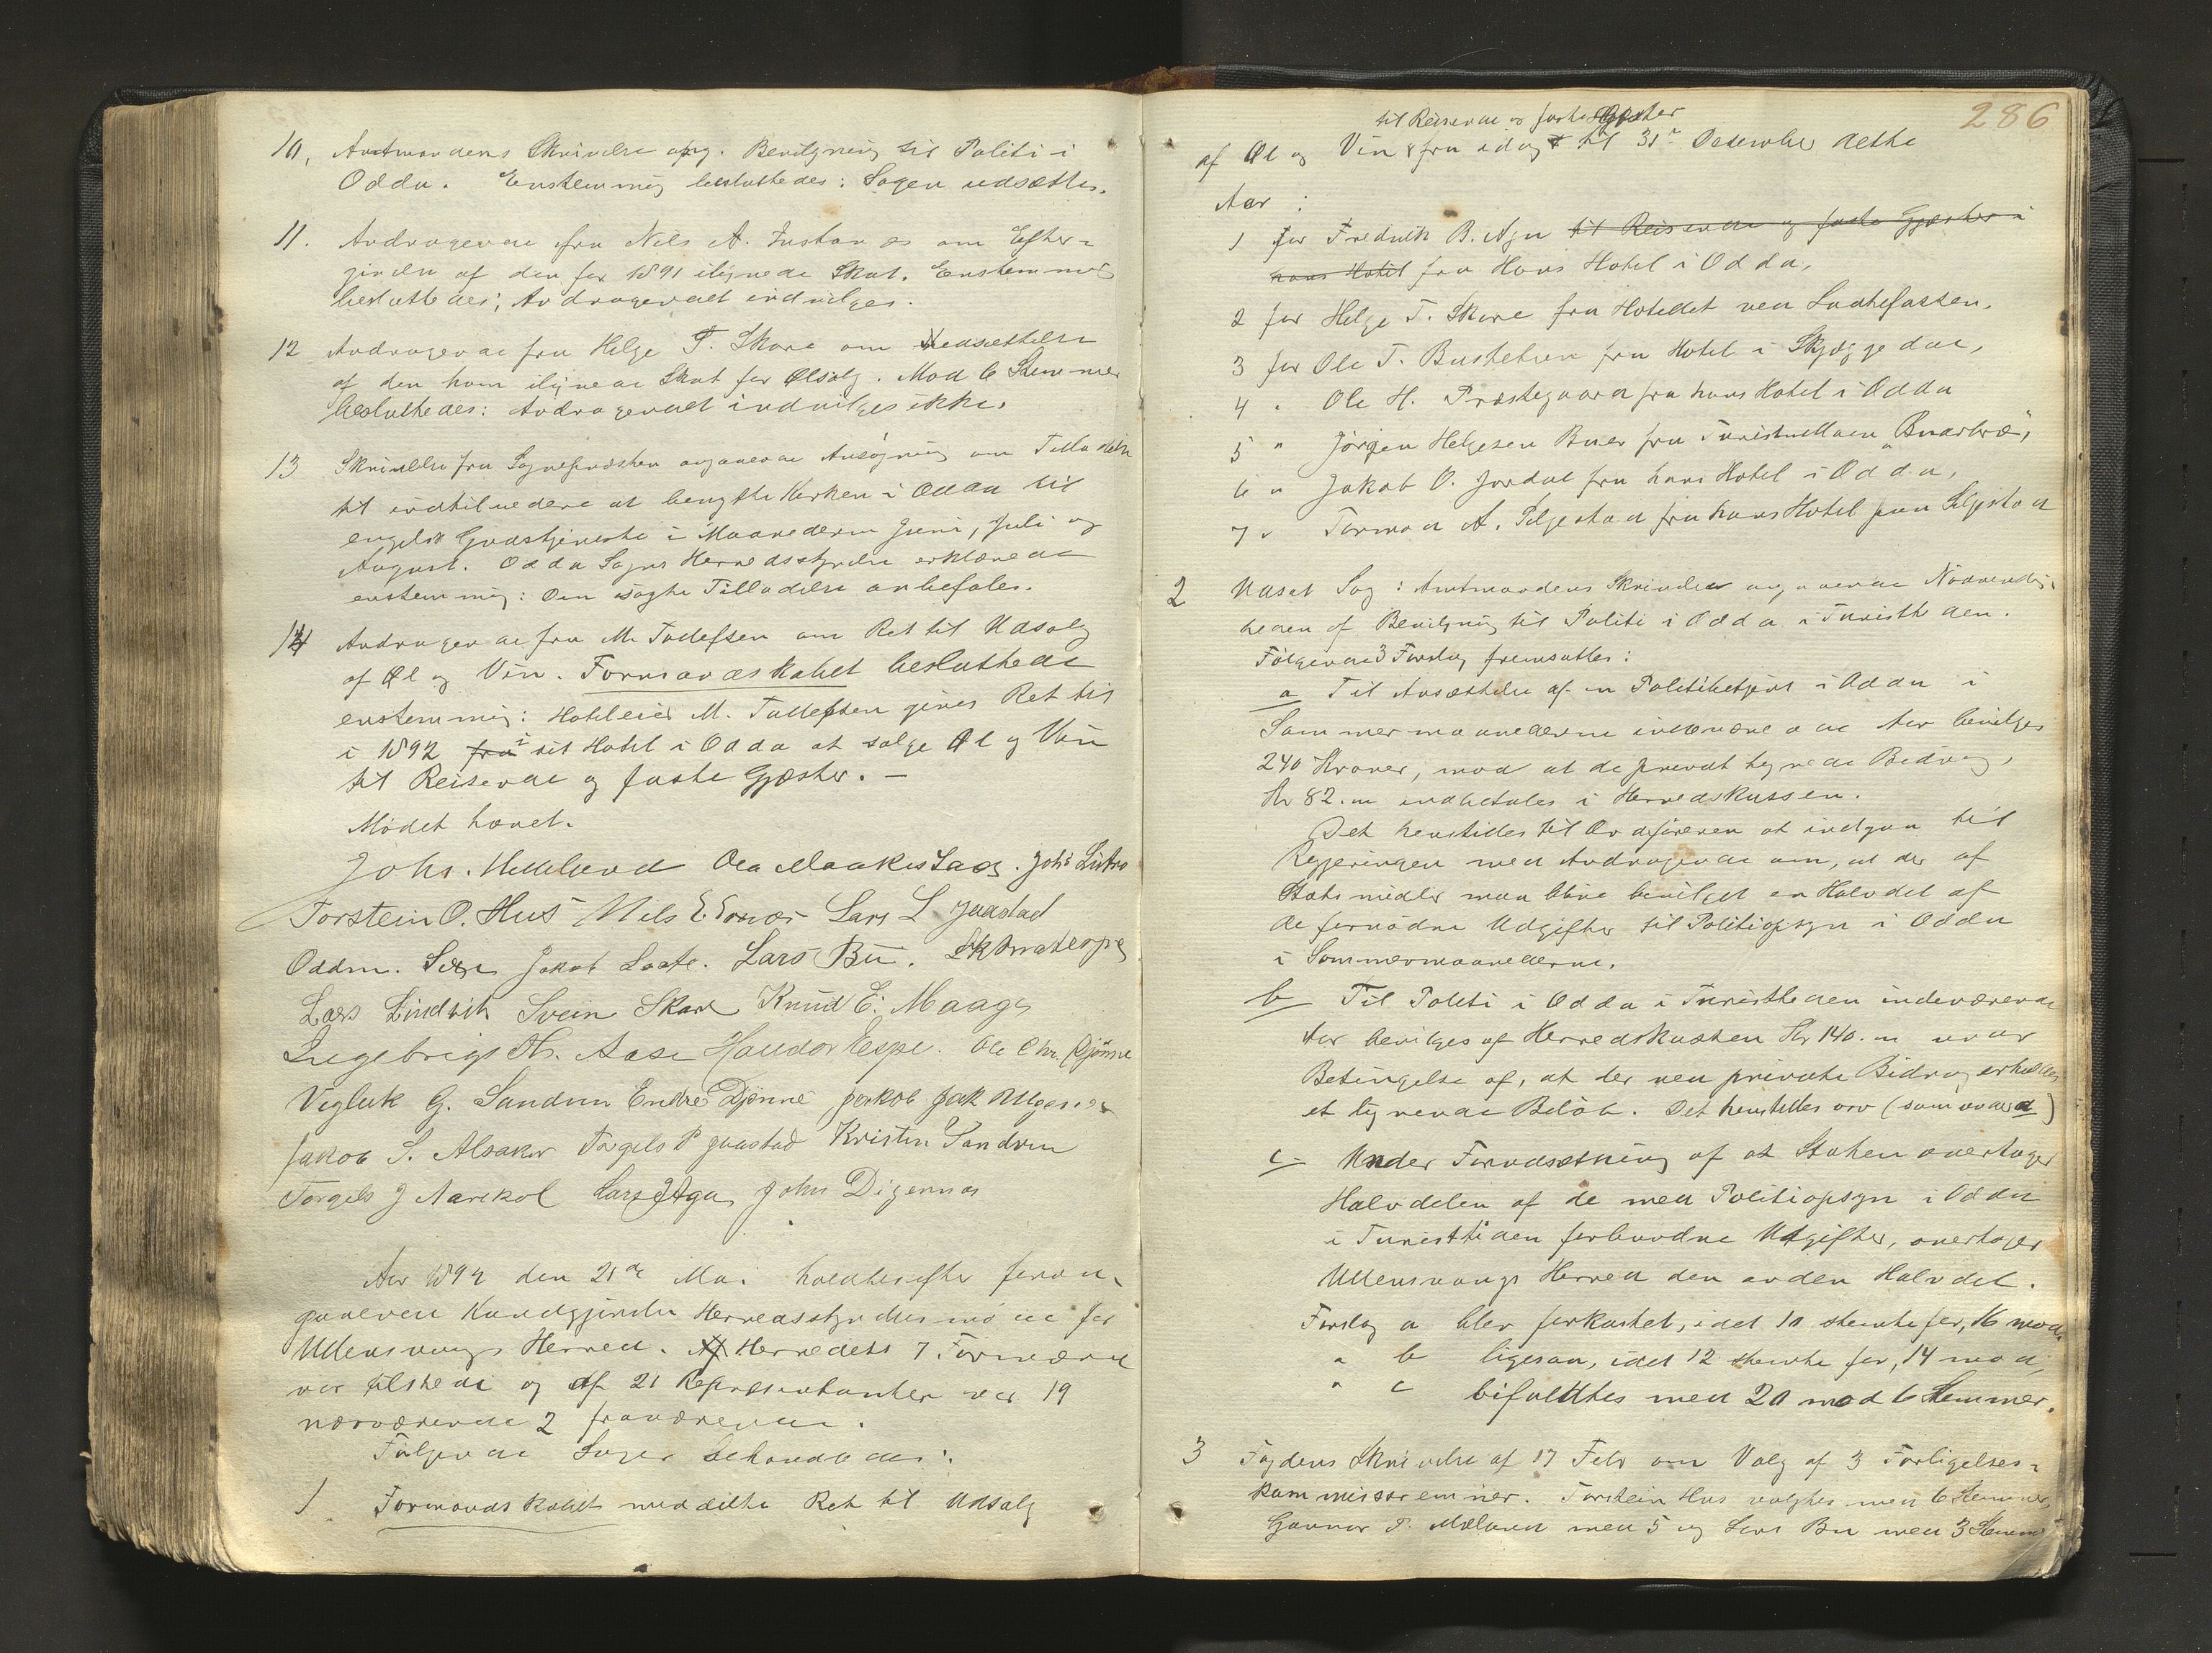 10, Amtmandens Skrivelse ang. Bevilgning til Politi i
Odda. Enstemmig besluttedes: Sagen udsættes.
11. Andragende fra Nils A. om Efter-
givelse af den for 1891 ilignede Skat. Enstemmig
besluttedes; Andragendet indvilges.
12 Andragende fra Helge T. Skare om Nedsættelse
af den ham ilignede Skat for Ølsalg. Mod 6 Stemmer
besluttedes: Andragendet indvilges ikke.
13 Skrivelse fra Sognepræsten angaaende Ansøgning om Tilladelse
til indtilvidere at benytte Kirken i Odda til
engelsk Gudstjeneste i Maanederne Juni, Juli og
August. Odda Sogns Herredsstyrelse erklærede
enstemmig: Den søgte Tilladelse anbefales.
14 Andragende fra M. Tollefsen om Ret til Udsalg
af Øl og Vin. Formandskabet besluttede
enstemmig: Hoteleier M. Tollefsen gives Ret til
i 1892 fra i sit Hotel i Odda at sælge Øl og Vin
til Reisende og faste Gjæster. —
Mødet hævet.
Johs. Helleland Ola Maakestad. Johs
Torstein O. Hus Nils E Lars L Jaastad
Oddm. Jakob Lars Bu.
Lars Lindvik Svein Skare Knud E. Maage
Ingebrigt Th. Aase Haldor Espe. Ole Chr. Djønne
Vigluk G. Sandven Endre Djønne Jakob Jak
Jakob S. Alsaker Torgels P Jaastad Kristen Sandven
Torgels J Lars J Aga John Digernæs
Aar 1892 den 21de Mai holdtes efter foran-
gaaende Kundgjørelse Herredsstyrelsesmøde for
Ullensvangs Herred. Af Herredets 7 Formænd
var tilstede og af 21 Repræsentanter var 19
nærværende 2 fraværende.
Følgende Sager behandledes:
1. Formandskabet meddelte Ret til Udsalg
286
til Reisende og faste Gjæster
af Øl og Vin fra idag til 31te Desember dette
Aar:
1 for Fredrik B. Aga til Reisende og faste Gjæster i
hans Hotel fra Hans Hotel i Odda,
2 for Helge T. Skare fra Hotellet ved Laatefossen,
3 for Ole T. Bustetun fra Hotel i Skjæggedal,
4 " Ole H. Præstegaard fra hans Hotel i Odda
5 " Jørgen Helgesen Buer fra "Buarbræ",
6 " Jakob O. Jordal fra hans Hotel i Odda,
7 " Tormod A. Seljestad fra hans Hotel paa Seljestad
2 Udsat Sag: Amtmandens Skrivelse angaaende Nødvendig-
heden af Bevilgning til Politi i Odda i Turisttiden.
Følgende 3 Forslag fremsattes:
a Til Ansættelse af en Politibetjent i Odda i
Sommermaanederne indeværende Aar bevilges
240 Kroner, mod at de privat tegnede Bidrag,
Kr 82.00 indbetales i Herredskassen.
Det henstilles til Ordføreren at indgaa til
Regjeringen med Andragende om, at der af
Statsmidler maa blive bevilget en Halvdel af
de fornødne Udgifter til Politiopsyn i Odda
i Sommermaanederne.
b Til Politi i Odda i Turisttiden indeværende
Aar bevilges af Herredskassen Kr 140.00 under
Betingelse af, at der ved private Bidrag erholdes
et lignende Beløb. Det henstilles osv (som under a)
c Under Forudsætning af at Staten overtager
Halvdelen af de med Politiopsyn i Odda
i Turisttiden forbundne Udgifter, overtager
Ullensvangs Herred den anden Halvdel.
Forslag a blev forkastet, idet 10 stemte for, 16 mod,
" b ligesaa, idet 12 stemte for, 14 mod,
" c bifaldtes med 20 mod 6 Stemmer.
3 Fogdens Skrivelse af 17 Febr om Valg af 3 Forligelses-
kommissærer. Torstein Hus valgtes med 6 Stemmer,
Gunnar P. Mæland med 5 og Lars Bu med 3 Stemmer